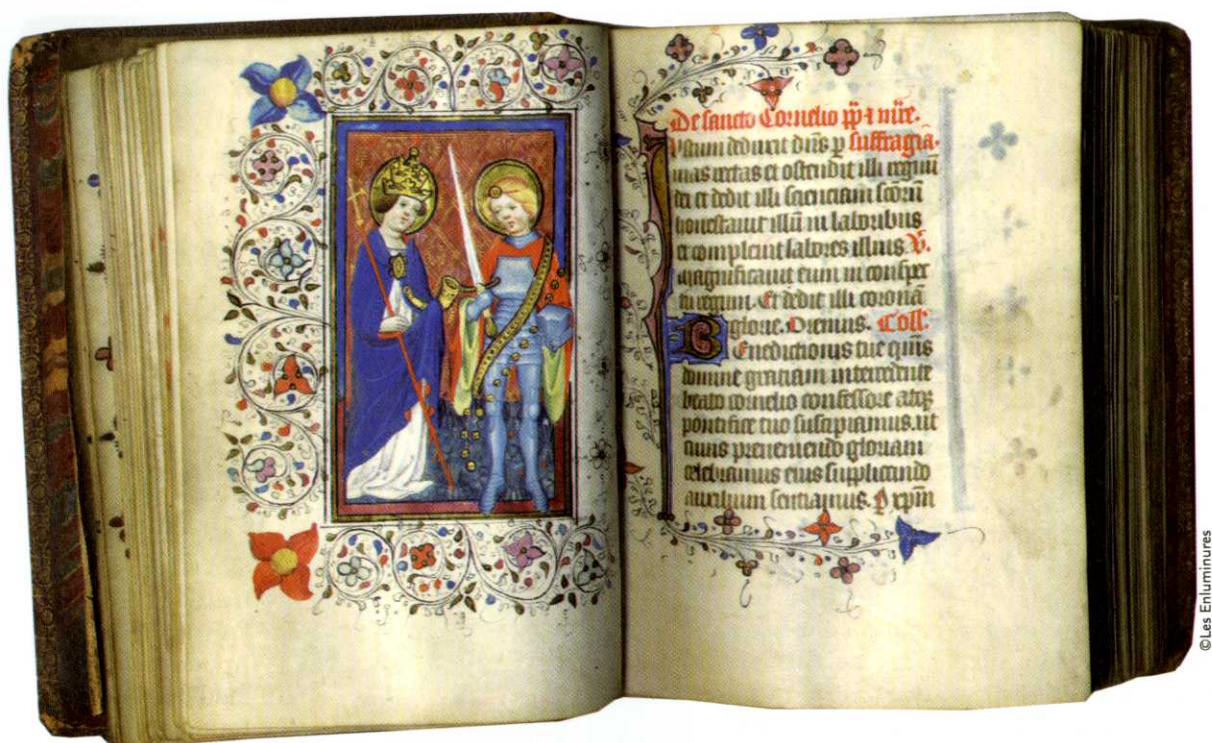 De sancto Cornelio pp̄ ⁊ mr̄e.
Iustum deduxit dn̄s p̄ suffragia.
uias rectas et ostendit illi regnū
dei et dedit illi scienciam sc̄orū
honestauit illū in laboribus
et compleuit labores illius. V̄.
magnificauit eum in conspec
tu regum. Et dedit illi coronā
glorie. Oremus. Coll:
Benedictionis tue qm̄s
domine gratiam intercedente
beato cornelio confessore atqꝫ
pontifice tuo suscipiamus. ut
cuius preueniendo gloriam
celebramus eius supplicando
auxilium sentiamus. P xp̄m
©Les Enluminures